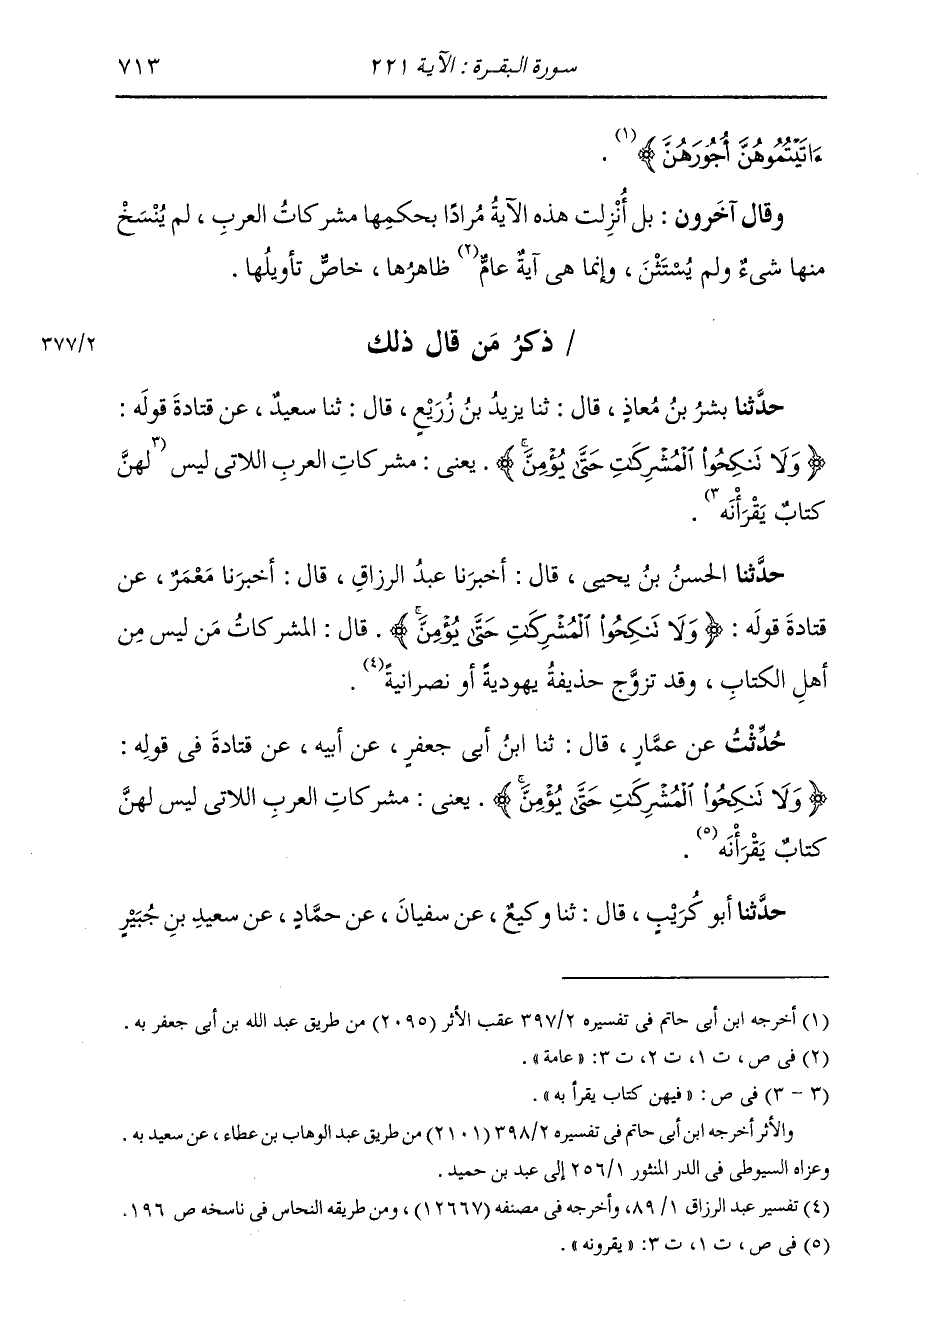 سورة البقرة : الآية ٢٢١ ٧١٣
ءَاتَيْتُمُوهُنَّ أُجُورَهُنَّ ﴾(١) .
وقال آخَرون : بل أُنْزِلت هذه الآيةُ مُرادًا بحكمِها مشركاتُ العربِ ، لم يُنْسَخْ
منها شىءٌ ولم يُسْتَثْنَ ، وإنما هى آيةٌ عامٌّ(٢) ظاهرُها ، خاصٌّ تأويلُها .
/ ذكرُ مَن قال ذلك ٣٧٧/٢
حدَّثنا بشرُ بنُ مُعاذٍ ، قال : ثنا يزيدُ بنُ زُرَيْعٍ ، قال : ثنا سعيدٌ ، عن قتادةَ قولَه :
﴿ وَلَا نَنكِحُوا۟ ٱلْمُشْرِكَٰتِ حَتَّىٰ يُؤْمِنَّ ۚ﴾ . يعنى : مشركاتِ العربِ اللاتى ليس (٣لهنَّ
كتابٌ يَقْرَأْنَه٣) .
حدَّثنا الحسنُ بنُ يحيى ، قال : أخبرَنا عبدُ الرزاقِ ، قال : أخبرَنا مَعْمَرٌ ، عن
قتادةَ قولَه : ﴿ وَلَا نَنكِحُوا۟ ٱلْمُشْرِكَٰتِ حَتَّىٰ يُؤْمِنَّ ۚ﴾ . قال : المشركاتُ مَن ليس مِن
أهلِ الكتابِ ، وقد تزوَّج حذيفةُ يهوديةً أو نصرانيةً(٤) .
حُدِّثْتُ عن عمَّارٍ ، قال : ثنا ابنُ أبى جعفرٍ ، عن أبيه ، عن قتادةَ فى قولِه :
﴿ وَلَا نَنكِحُوا۟ ٱلْمُشْرِكَٰتِ حَتَّىٰ يُؤْمِنَّ ۚ﴾ . يعنى : مشركاتِ العربِ اللاتى ليس لهنَّ
كتابٌ يَقْرَأْنَه(٥) .
حدَّثنا أبو كُرَيْبٍ ، قال : ثنا وكيعٌ ، عن سفيانَ ، عن حمَّادٍ ، عن سعيدِ بنِ جُبَيْرٍ
(١) أخرجه ابن أبى حاتم فى تفسيره ٣٩٧/٢ عقب الأثر (٢٠٩٥) من طريق عبد الله بن أبى جعفر به .
(٢) فى ص ، ت ١، ت ٢، ت ٣: « عامة » .
(٣ - ٣) فى ص : « فيهن كتاب يقرأ به » .
والأثر أخرجه ابن أبى حاتم فى تفسيره ٣٩٨/٢ (٢١٠١) من طريق عبد الوهاب بن عطاء ، عن سعيد به .
وعزاه السيوطى فى الدر المنثور ٢٥٦/١ إلى عبد بن حميد .
(٤) تفسير عبد الرزاق ١/ ٨٩، وأخرجه فى مصنفه (١٢٦٦٧) ، ومن طريقه النحاس فى ناسخه ص ١٩٦.
(٥) فى ص ، ت ١، ت ٣: « يقرونه » .